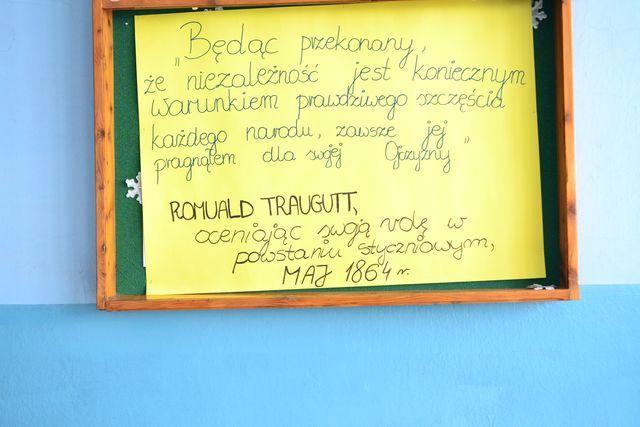 Będąc przekonany,
że „niezależność jest koniecznym
warunkiem prawdziwego szczęścia
każdego narodu, zawsze jej
pragnąłem dla swojej Ojczyzny"
ROMUALD TRAUGUTT,
oceniając swoją rolę w
powstaniu styczniowym,
MAJ 1864 r.